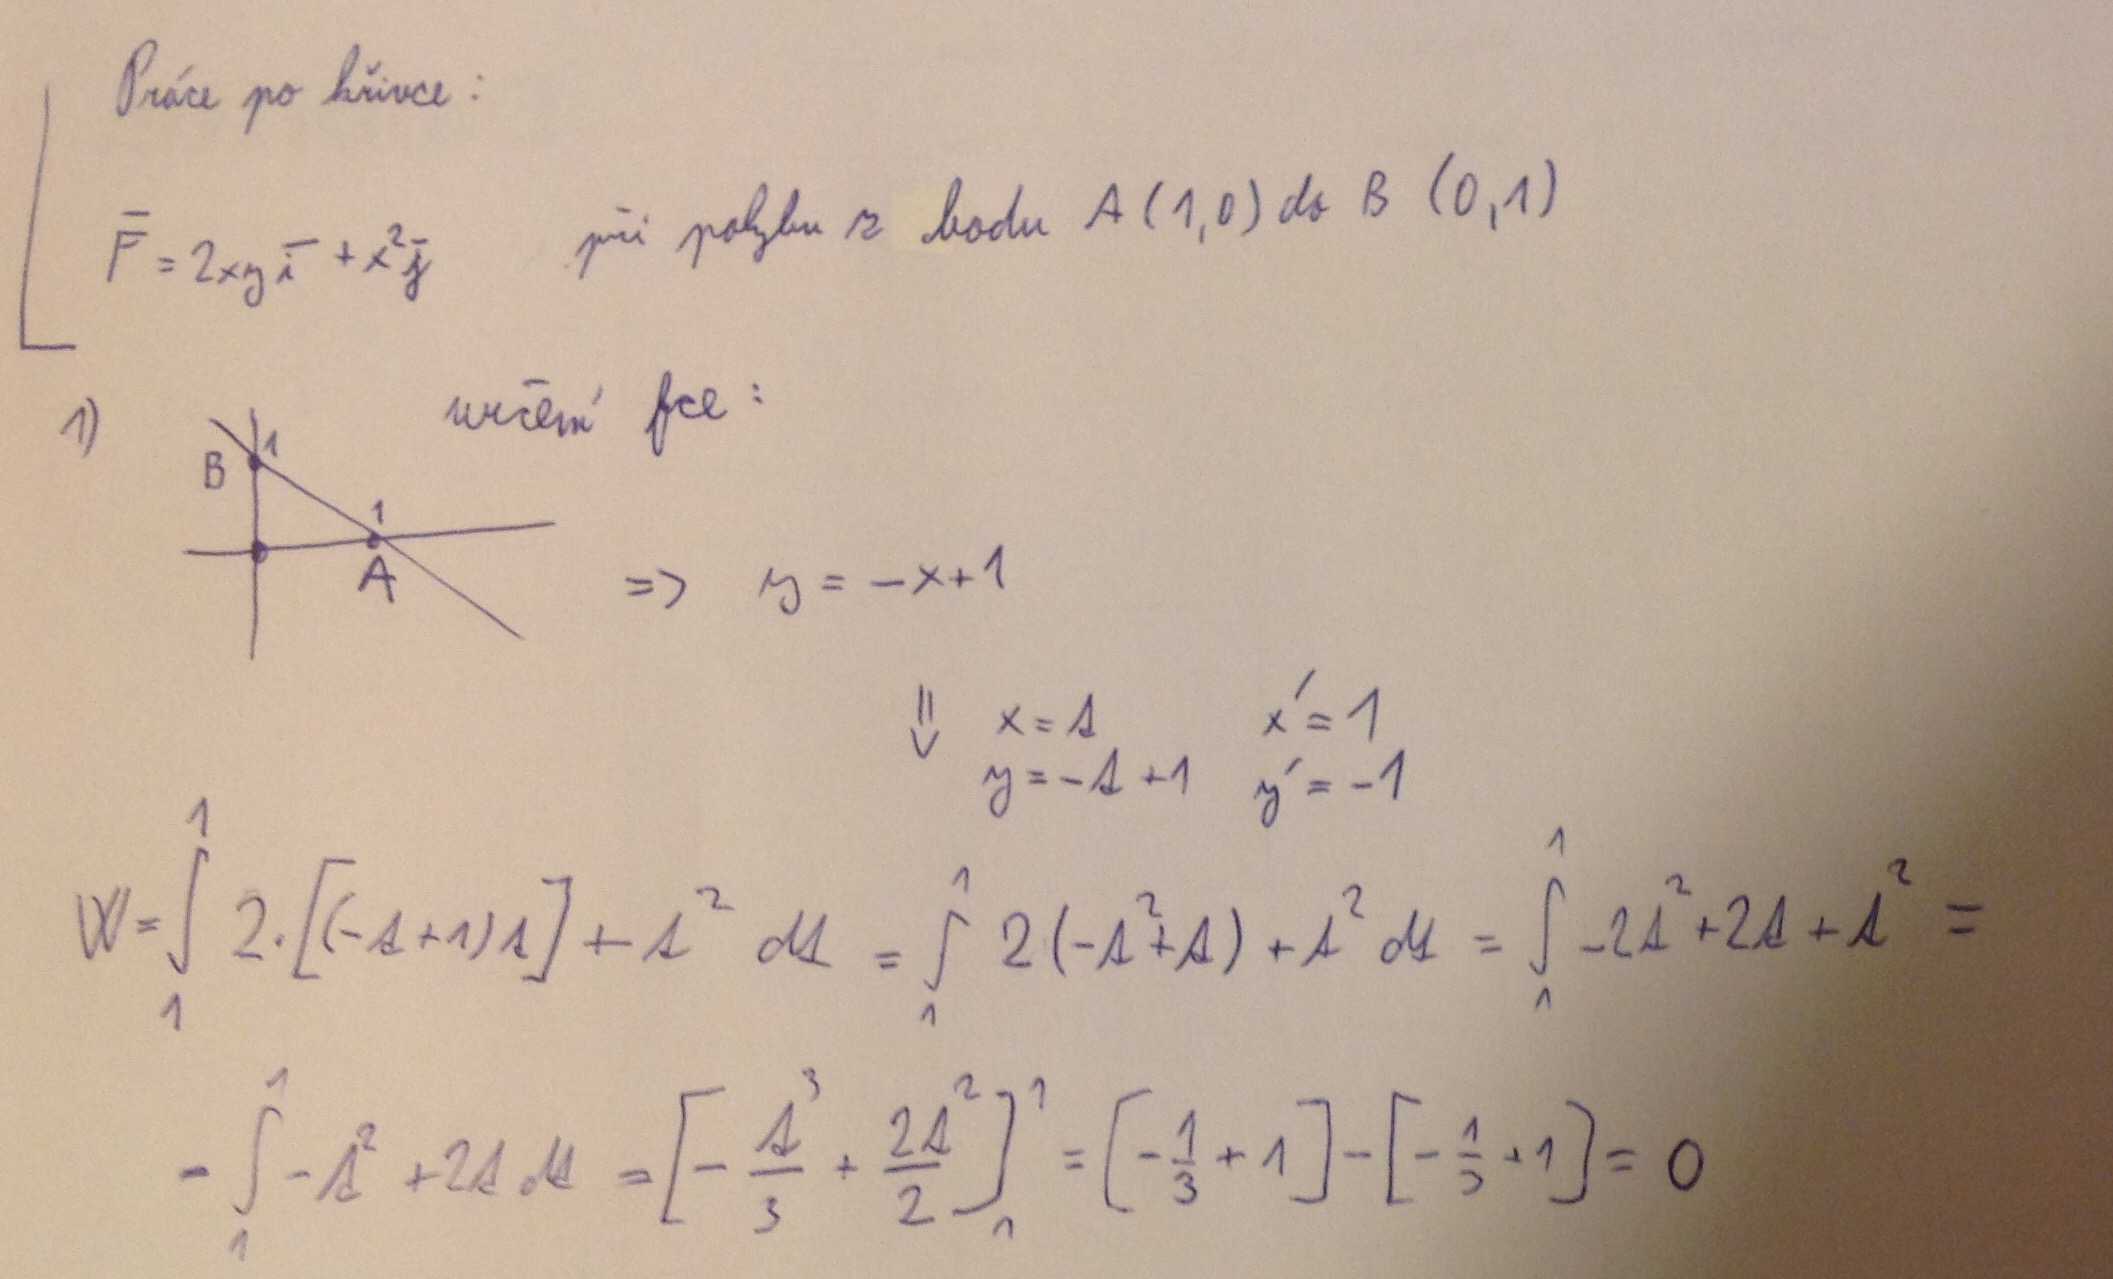 Práce po křivce:
F̄ = 2xy ī + x² j̄ při pohybu z bodu A (1,0) do B (0,1)
1) určení fce:
B 1
1
A
=> y = -x+1
⇓ x = t x' = 1
y = -t +1 y' = -1
W = ∫₁¹ 2·[(-t+1)t] + t² dt = ∫₁¹ 2(-t²+t) + t² dt = ∫₁¹ -2t² + 2t + t² =
= ∫₁¹ -t² + 2t dt = [-t³/3 + 2t²/2]₁¹ = [-1/3 + 1] - [-1/3 + 1] = 0